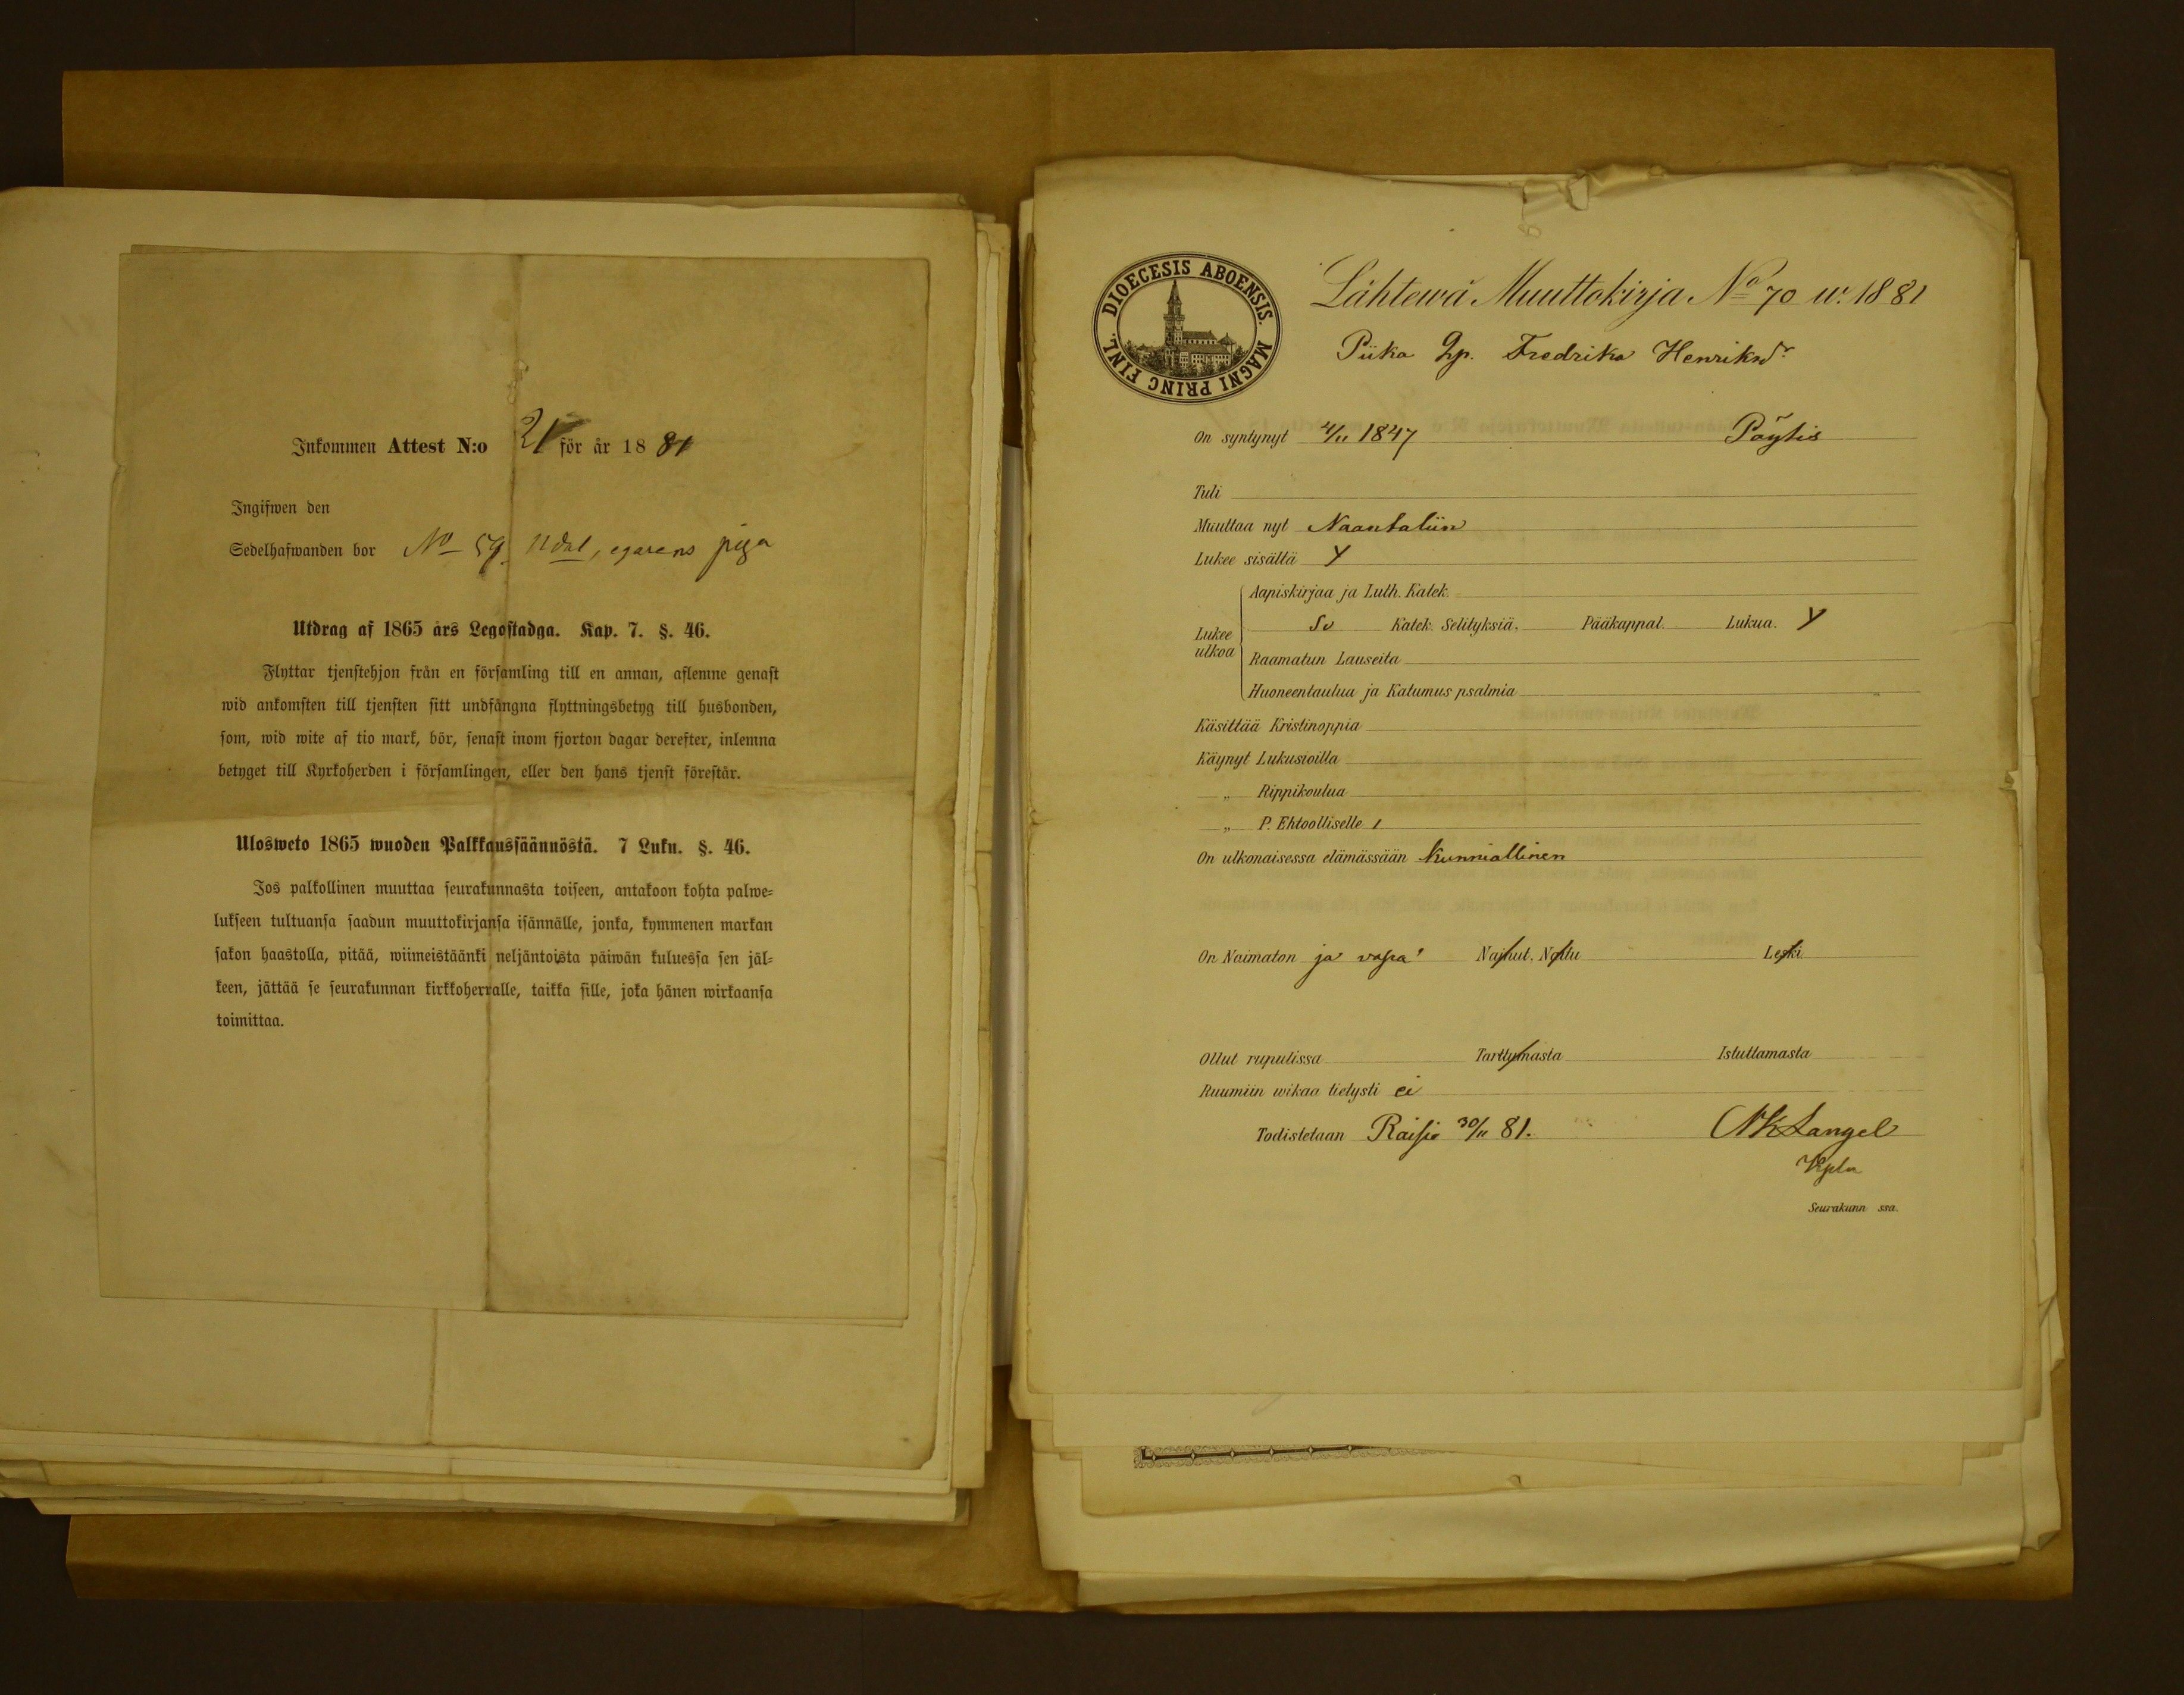 Inkommen Attest N:o 21 för år 1881
Ingifwen den
Sedelhafwanden bor No 59 Udal, egarens piga
Utdrag af 1865 års Legostadga. Kap. 7. §. 46.
Flyttar tjenstehjon från en församling till en annan, aflemne genast
wid ankomsten till tjensten sitt undfångna flyttningsbetyg till husbonden,
som, wid wite af tio mark, bör, senast inom fjorton dagar derefter, inlemna
betyget till Kyrkoherden i församlingen, eller den hans tjenst förestår.
Ulosweto 1865 wuoden Palkkaussäännöstä. 7 Luku. §. 46.
Jos palkollinen muuttaa seurakunnasta toiseen, antakoon kohta palwe=
lukseen tultuansa saadun muuttokirjansa isännälle, jonka, kymmenen markan
sakon haastolla, pitää, wiimeistäänki neljäntoista päiwän kuluessa sen jäl=
keen, jättää se seurakunnan kirkkoherralle, taikka sille, joka hänen wirkaansa
toimittaa.
DIOECESIS ABOENSIS. MAGNI PRINC FINL.
Lähtewä Muuttokirja No 70 w. 1881
Piika Fredrika Henriksdr
On syntynyt 4/11 1847 Pöytis
Tuli
Muuttaa nyt Naantaliin
Lukee sisältä Y
Lukee ulkoa
Aapiskirjaa ja Luth. Katek.
Sv Katek. Selityksiä. Pääkappal. Lukua. Y
Raamatun Lauseita
Huoneentaulua ja Katumus psalmia
Käsittää Kristinoppia
Käynyt Lukusioilla
„ Rippikoulua
„ P. Ehtoolliselle 1
On ulkonaisessa elämässään kunniallinen
On Naimaton ja vapa Naihut. Naitu Leski
Ollut rupulissa Tarttumasta Istuttamasta
Ruumiin wikaa tietysti ei
Todistetaan Raisio 30/11 81. NK Langel
Kpln
Seurakunn ssa.